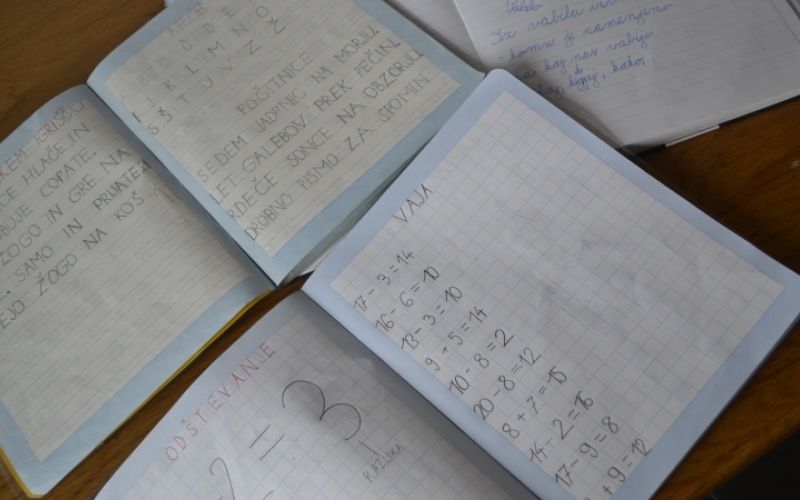 HLAČE IN
COPATE.
ŽOGO IN GRE NA
SAMO IN PRIJATELJ
ŽOGO NA KOŠ.
J K L M N O
S Š T U V Z Ž
POČITNICE
SEDEM JADRNIC NA MORJU.
LET GALEBOV PREK PEČIN.
RDEČE SONCE NA OBZORJU
DROBNO PISMO ZA SPOMIN
Iz vabila
- komu je namenjeno
kaj nas vabijo
kako,
VAJA
17 - 3 = 14
16 - 6 = 10
13 - 3 = 10
9 + 5 = 14
10 - 8 = 2
20 - 8 = 12
8 + 7 = 15
14 - 2 = 16
17 - 9 = 8
+ 9 = 12
ODŠTEVANJE
2 = 3
RAZLIKA